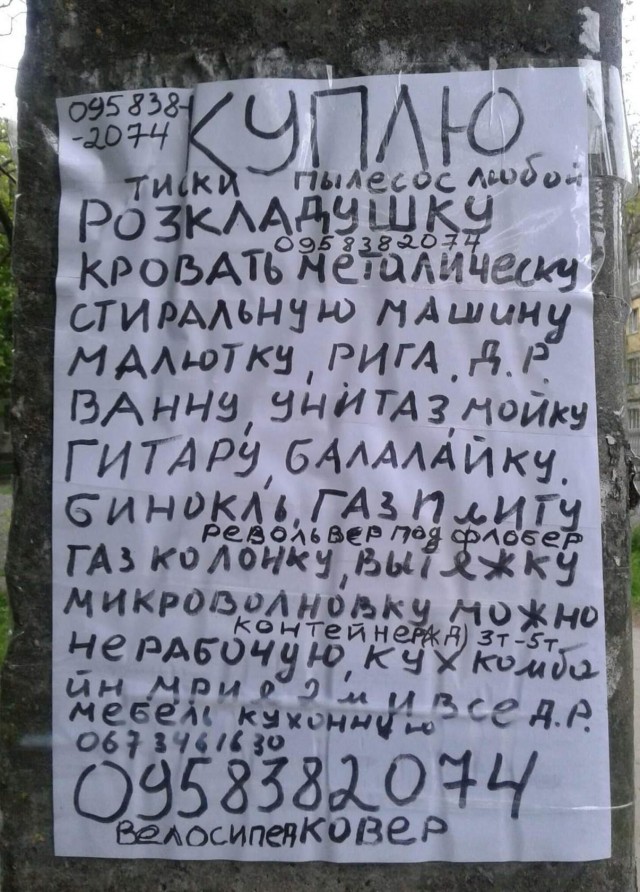 095 838-
-2074
КУПЛЮ
тиски пылесос любой
РОЗКЛАДУШКУ
0958382074
КРОВАТЬ металическу
СТИРАЛЬНУЮ МАШИНУ
МАЛЮТКУ, РИГА. Д.Р.
ВАННУ, УНИТАЗ, МОЙКУ
ГИТАРУ, БАЛАЛАЙКУ.
БИНОКЛЬ, ГАЗ ПЛИТУ
РЕВОЛЬВЕР под ФЛОБЕР
ГАЗ КОЛОНКУ, ВЫТЯЖКУ
МИКРОВОЛНОВКУ МОЖНО
КОНТЕЙНЕР(ЖД) 3т-5т
НЕРАБОЧУЮ, КУХ комба
йн мрия 2м И ВСЕ Д.Р.
мебель кухонную
0673461630
0958382074
ВЕЛОСИПЕД КОВЕР